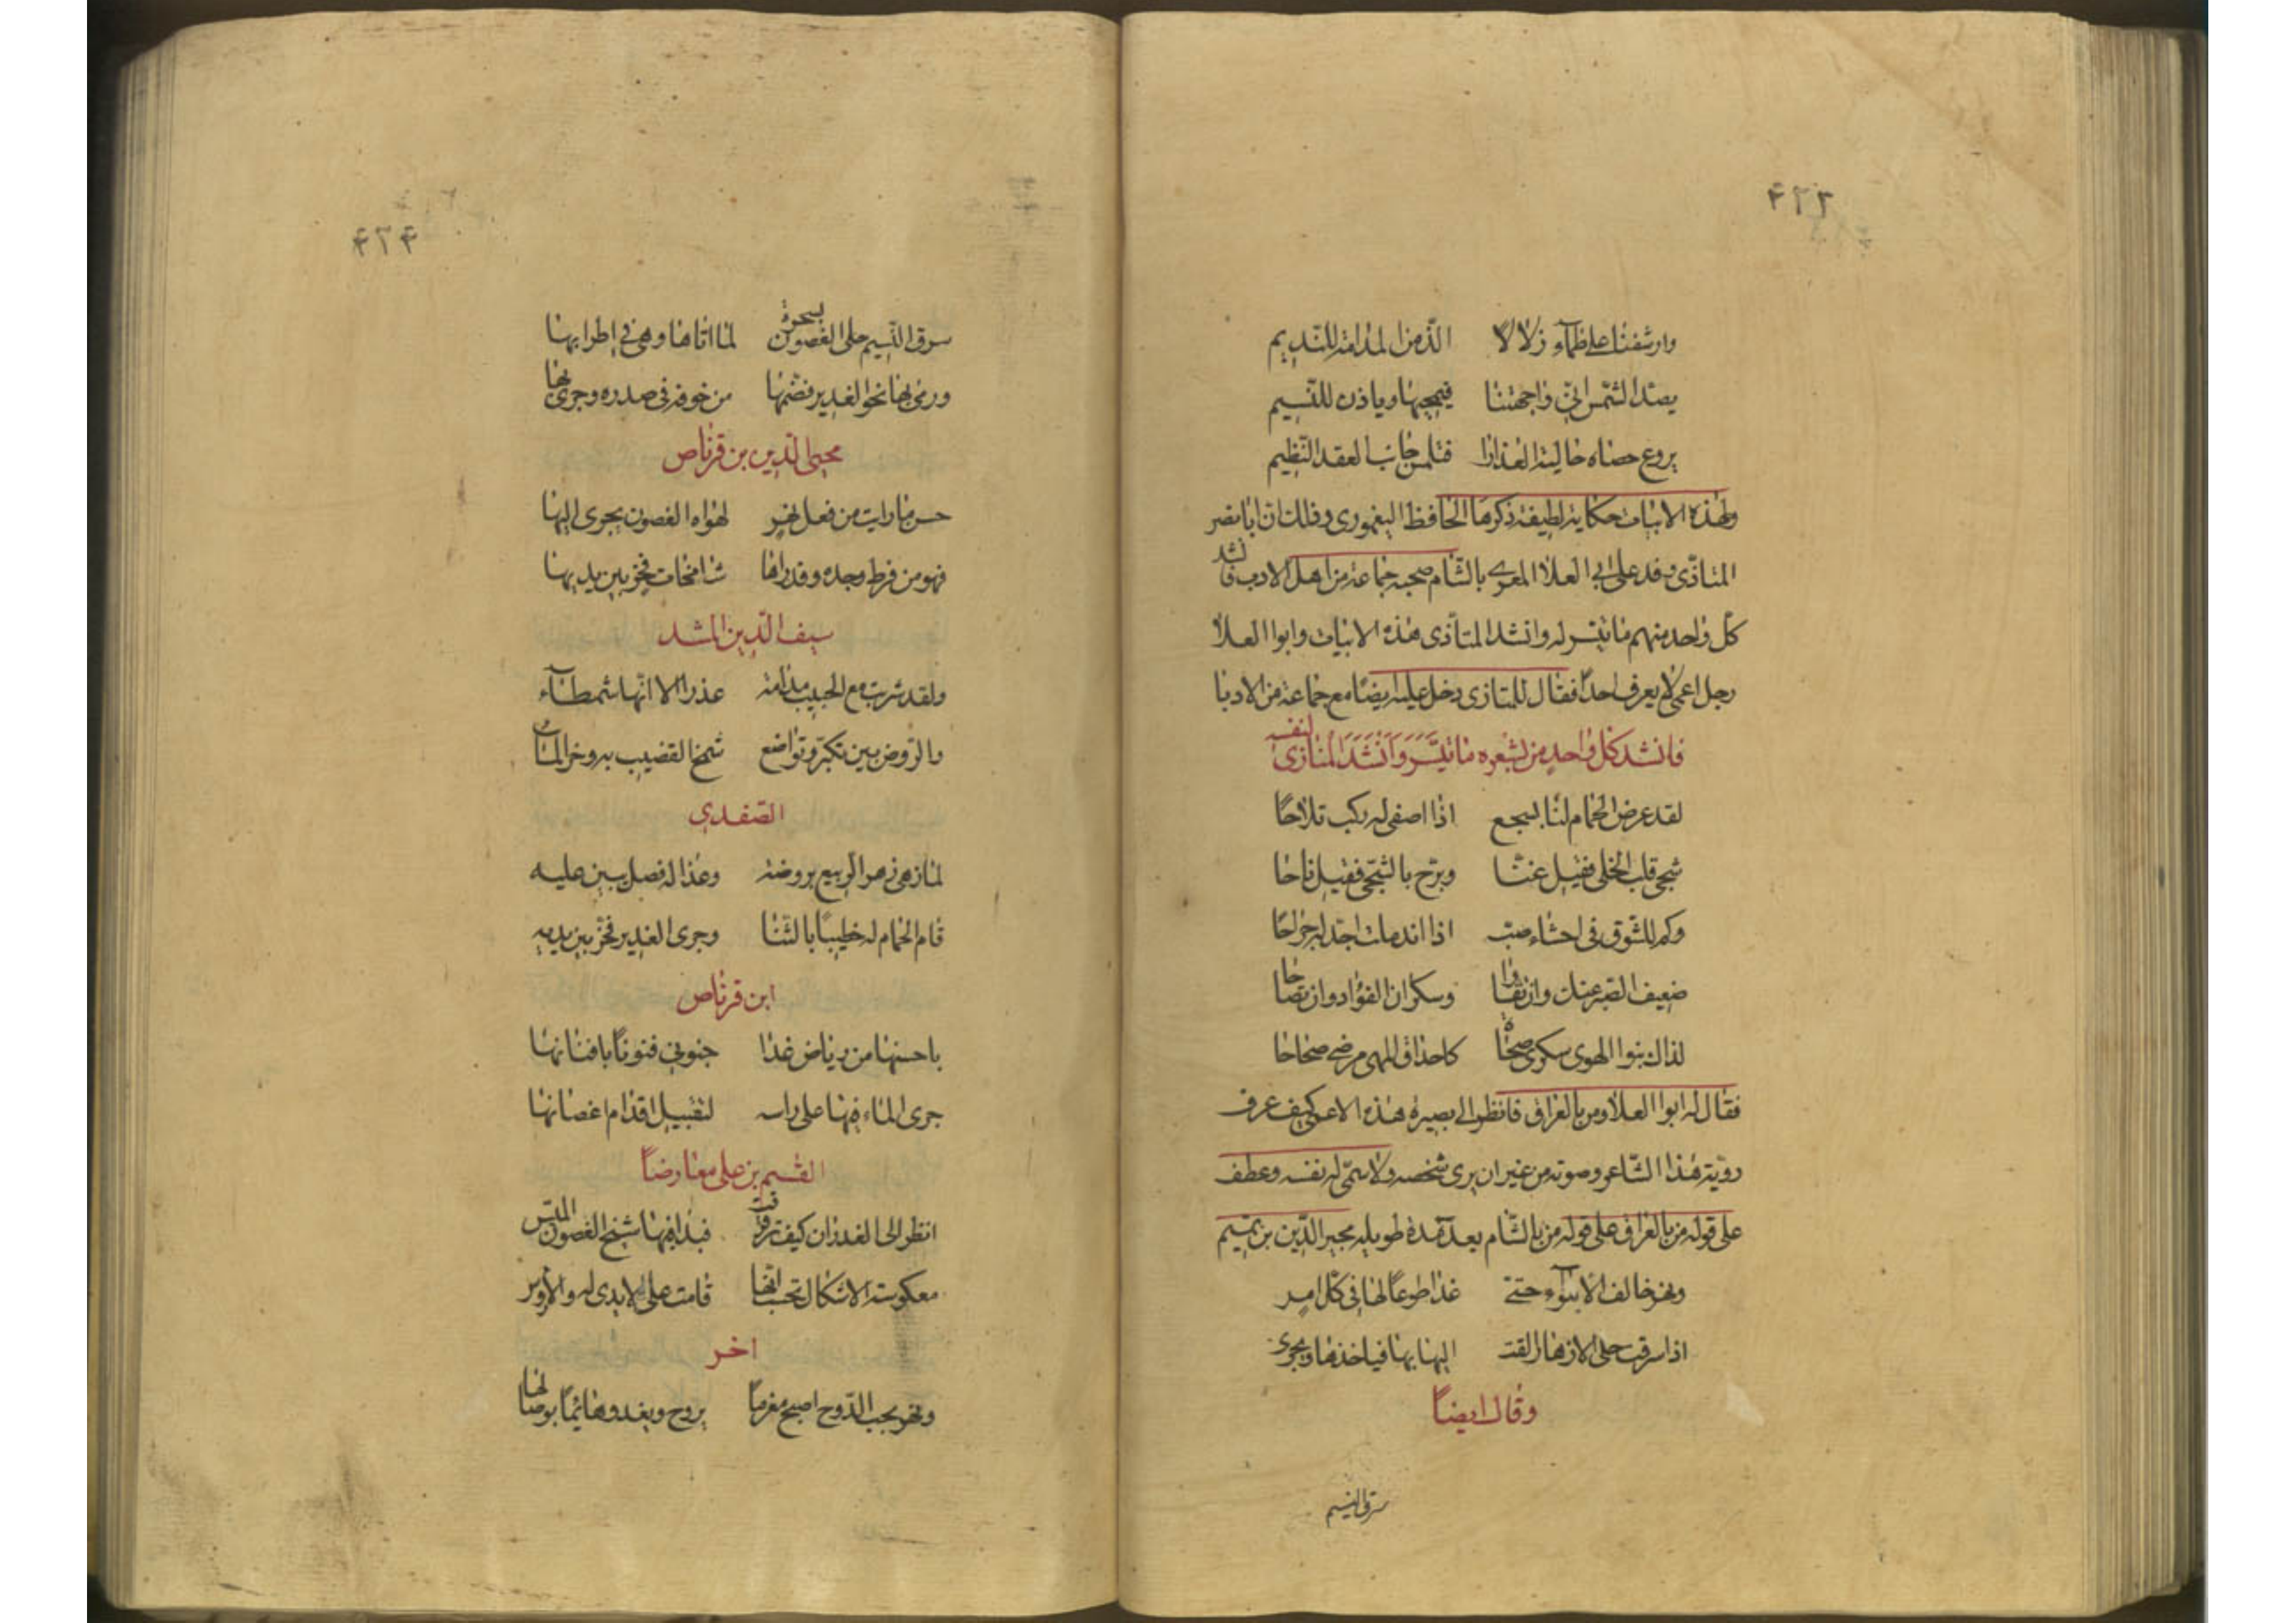 ۴۲۳
وارشفنا على ظمآء زلالا الذ من المدامة للنديم
يصد الشمس انى واجهتنا فيحجبها وياذن للنسيم
يروع حصاه حالية العذارا فتلمس جانب العقد النظيم
ولهذه الابيات حكاية لطيفة ذكرها الحافظ اليغمورى وذلك ان ابا نصر
المنازى وفد على ابى العلاا المعرى بالشام صحبه جماعة من اهل الادب فانشد
كل واحد منهم ما تيسر له وانشد المنازى هذه الابيات وابوا العلاا
رجل اعمى لا يعرف احدا فقال للمنازى دخل عليه ايضا مع جماعة من الادبا
فانشد كل واحد من شعره ما تيسر وانشد المنازى لنفسه
لقد عرض الحمام لنا بسجع اذا اصغى له ركب تلاحا
شجى قلب الخلى فقيل غنا وبرح بالشجى فقيل ناحا
وكم للشوق فى احشاء صب اذا اندملت اجد له جراحا
ضعيف الصبر عنك وان تقاوا وسكران الفؤاد وان تصاحا
لذاك بنوا الهوى سكرى صحاة كاحداق المهى مرضى صحاحا
فقال له ابوا العلاا ومن بالعراق فانظر الى بصيرة هذه الاعمى كيف عرف
روية هذا الشاعر وصوته من غير ان يرى شخصه ولا سمى له نفسه وعطف
على قوله من بالعراق على قوله من بالشام بعد مدة طويلة مجير الدين بن تميم
ونهر خالف الانواء حتى غدا طوعا لها فى كل امر
اذا سرقت حلى الازهار القت اليها بها فياخذها ويجرى
وقال ايضا
سرق النسيم
۴۲۴
سرق النسيم حلى الغصون بسحرة لما اتاها وهى فى اطرابها
ورمى بها نحو الغدير فضمها من خوفه فى صدره وجرى بها
محيى الدين بن قرناص
حسن ما رايت من فعل نهر لهواه الغصون يجرى اليها
فهو من فرط وجده وقد راها شامخات فخر بين يديها
سيف الدين المشد
ولقد شربت مع الحبيب مدامة عذرا الا انها شمطاء
والروض بين تكبر وتواضع شمخ القضيب به وخر الماء
الصفدي
لما زهى زهر الربيع بروضه وغدا له فصل يبين عليه
قام الحمام له خطيبا بالثنا وجرى الغدير فخر بين يديه
ابن قرناص
يا حسنها من رياض غدا جنونى فنونا بافنانها
جرى الماء فيها على راسه لتقبيل اقدام اغصانها
القسم بن على معارضا
انظر الى الغدران كيف ترقرقت فبدا فيها شبح الغصون الميس
معكوسة الاشكال تحسب انها قامت على الايدى له والارؤس
اخر
ونهر بحب الدوح اصبح مغرما يروح ويغدو هائما بوصالها